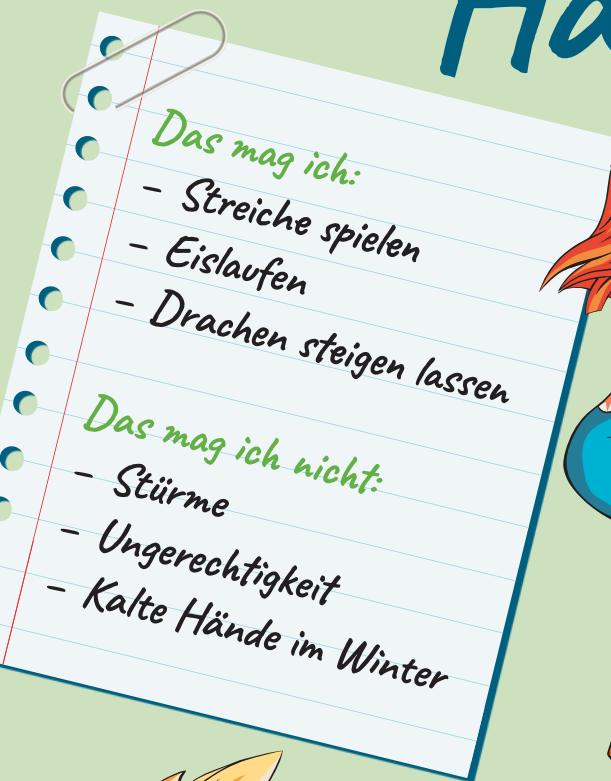 Das mag ich:
- Streiche spielen
- Eislaufen
- Drachen steigen lassen
Das mag ich nicht:
- Stürme
- Ungerechtigkeit
- Kalte Hände im Winter